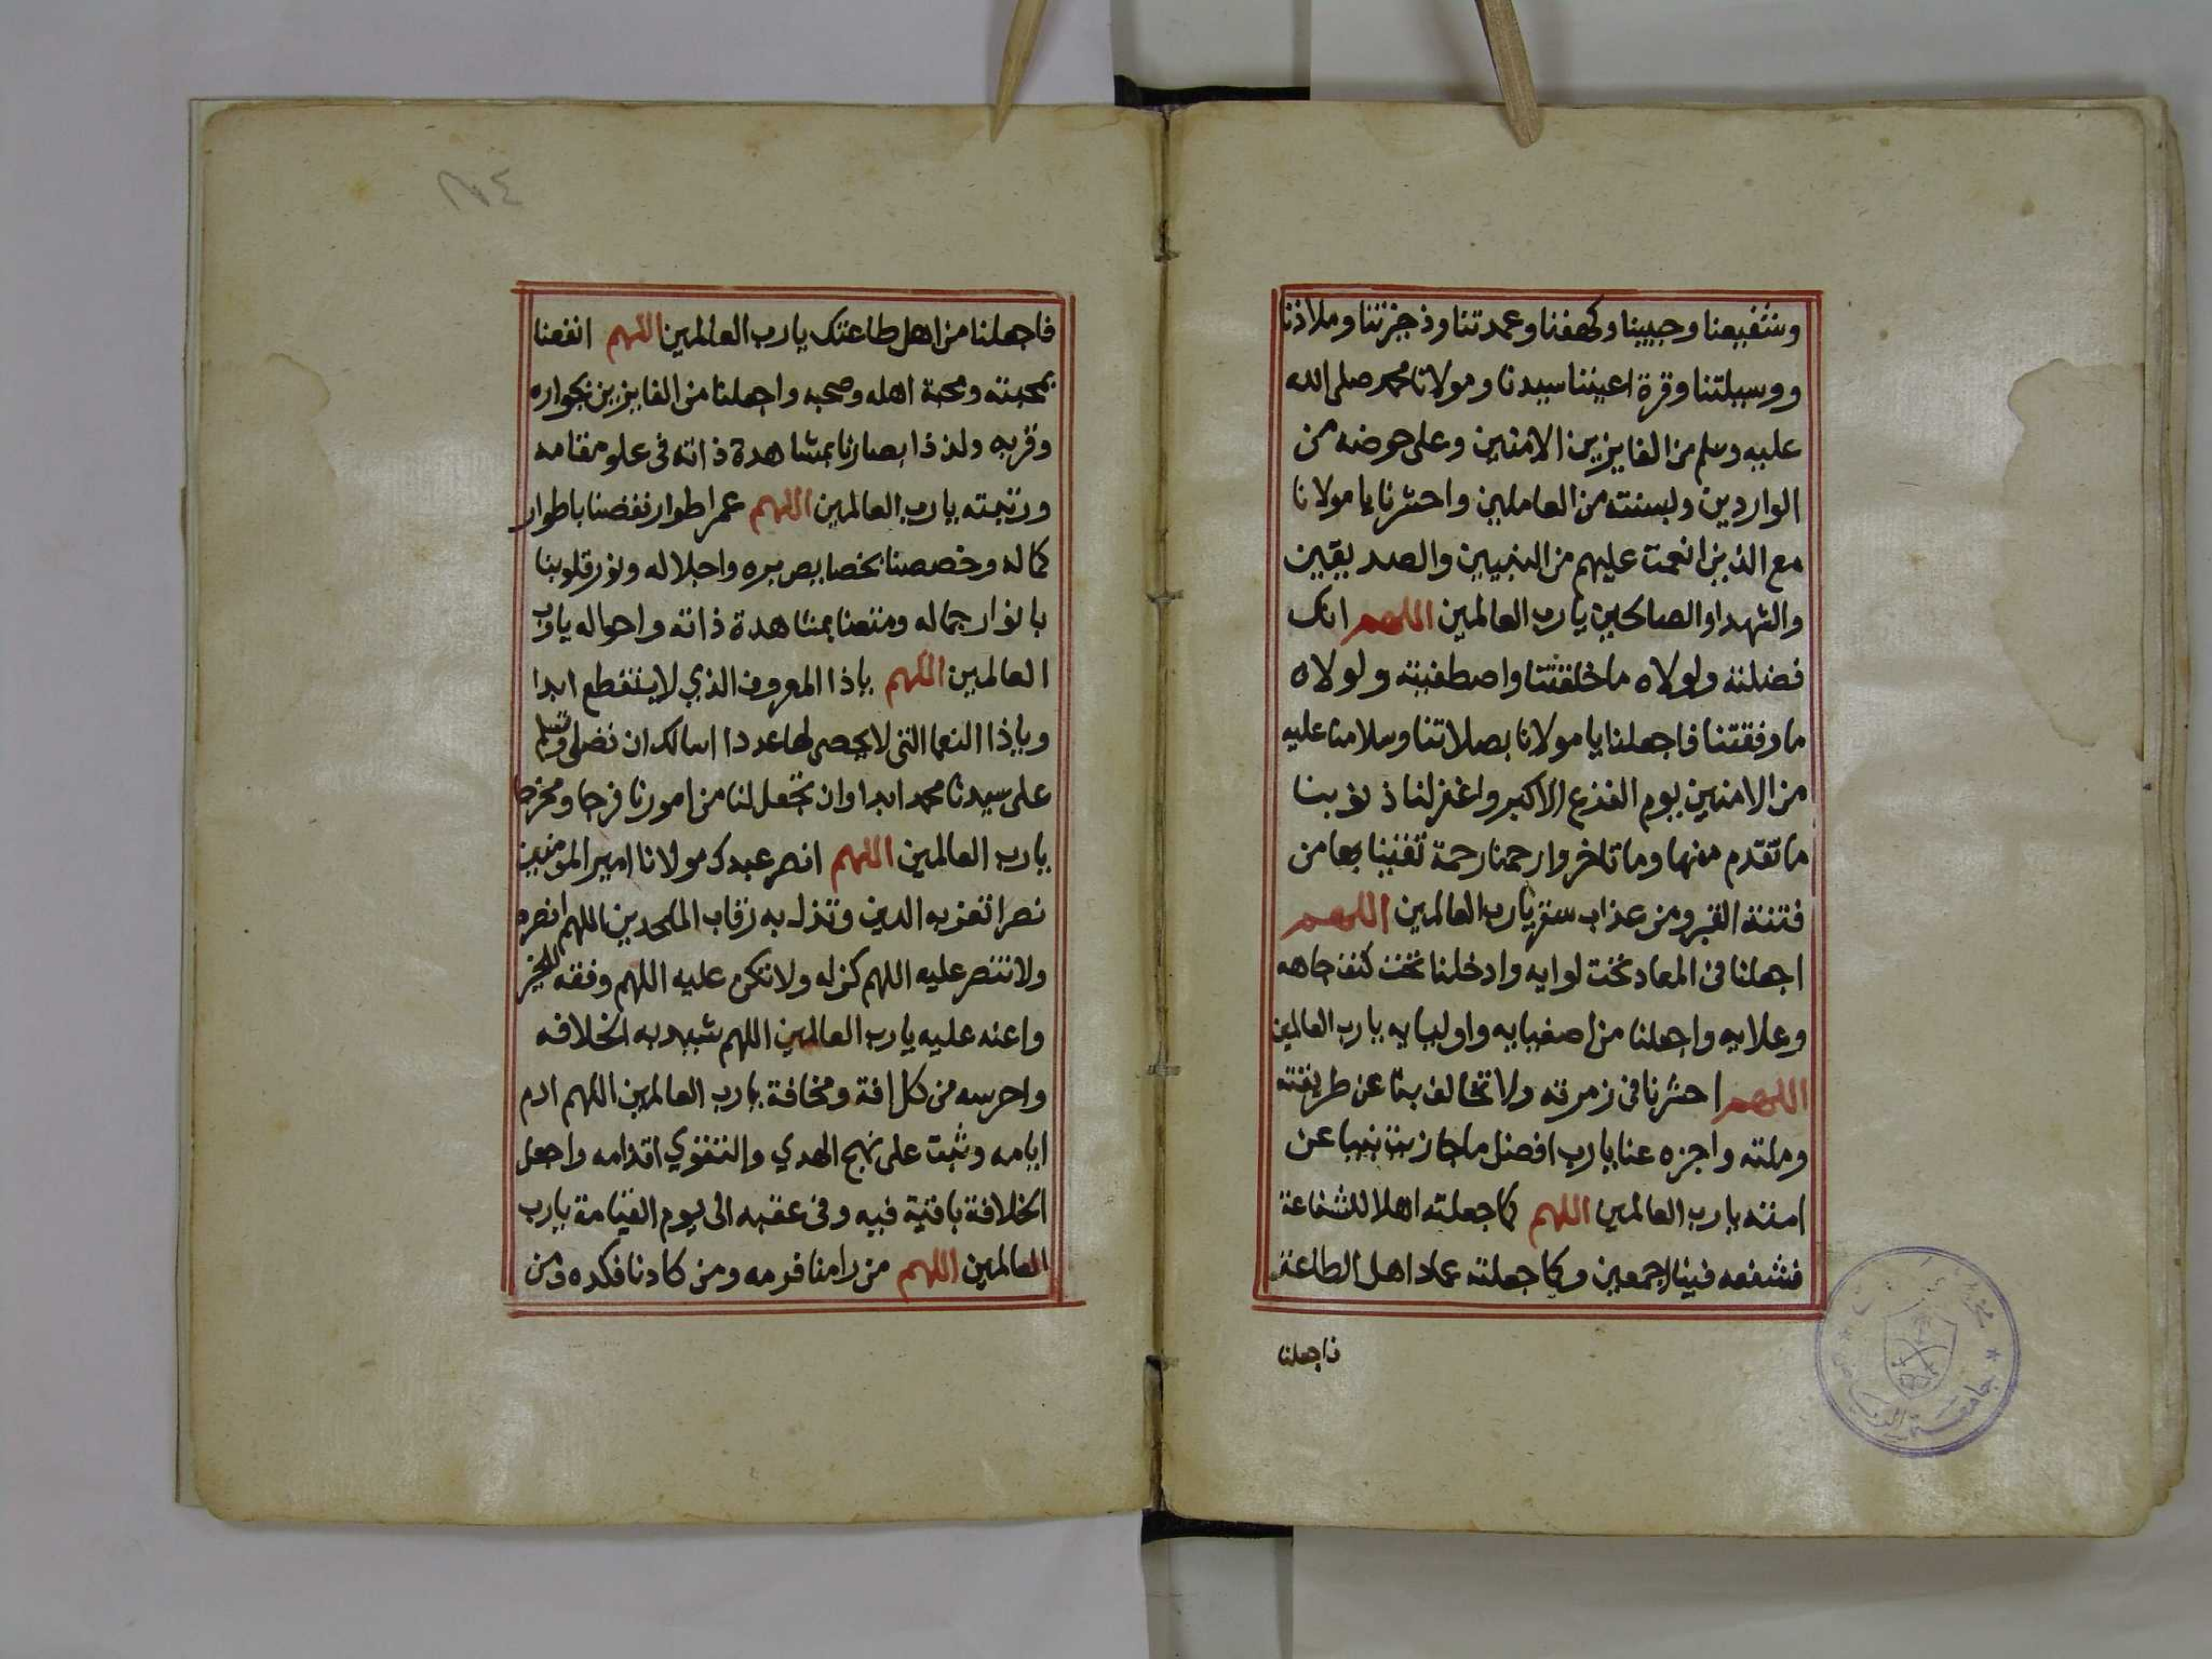 وشفيعنا وحبيبنا وكهفنا وعمدتنا وذخيرتنا وملاذنا
ووسيلتنا وقرة اعيننا سيدنا ومولانا محمد صلى الله
عليه وسلم من الفايزين الامنين وعلى حوضه من
الواردين وبسنته من العاملين واحشرنا يا مولانا
مع الذين انعمت عليهم من النبيين والصديقين
والشهدا والصالحين يا رب العالمين اللهم انك
فضلته ولولاه ما خلقتنا واصطفيته ولولاه
ما وفقتنا فاجعلنا يا مولانا بصلاتنا وسلامنا عليه
من الامنين يوم الفزع الاكبر واغفر لنا ذنوبنا
ما تقدم منها وما تاخر وارحمنا رحمة تقينا بها من
فتنة القبر ومن عذاب سقر يا رب العالمين اللهم
اجعلنا في المعاد تحت لوايه وادخلنا تحت كنف جاهه
وعلايه واجعلنا من اصفيايه واوليايه يا رب العالمين
اللهم احشرنا في زمرته ولا تخالف بنا عن طريقته
وملته واجزه عنا يا رب افضل ما جازيت نبيا عن
امته يا رب العالمين اللهم كما جعلته اهلا للشفاعة
فشفعه فينا اجمعين وكما جعلته عماد اهل الطاعة
فاجعلنا
جامعة الرياض
٢٧٤
فاجعلنا من اهل طاعتك يا رب العالمين اللهم انفعنا
بمحبته ومحبة اهله وصحبه واجعلنا من الفايزين بجواره
وقربه ولذذ ابصارنا بمشاهدة ذاته في علو مقامه
ورتبته يا رب العالمين اللهم عمر اطوار نقصنا باطوار
كماله وخصصنا بخصايص بره واجلاله ونور قلوبنا
بانوار جماله ومتعنا بمشاهدة ذاته واحواله يا رب
العالمين اللهم ياذا المعروف الذي لا ينقطع ابدا
وياذا النعما التي لا يحصى لها عددا اسالك ان تصلي وتسلم
على سيدنا محمد ابدا وان تجعل لنا من امورنا فرجا ومخرجا
يا رب العالمين اللهم انصر عبدك مولانا امير المؤمنين
نصرا تعز به الدين وتذل به رقاب الملحدين اللهم انصره
ولا تنصر عليه اللهم كن له ولا تكن عليه اللهم وفقه للخير
واعنه عليه يا رب العالمين اللهم شيد به الخلافه
واحرسه من كل افة ومخافة يا رب العالمين اللهم ادم
ايامه وثبت على نهج الهدي والتقوي اقدامه واجعل
الخلافة باقية فيه وفي عقبه الى يوم القيامة يا رب
العالمين اللهم من رامنا فرمه ومن كادنا فكده ومن